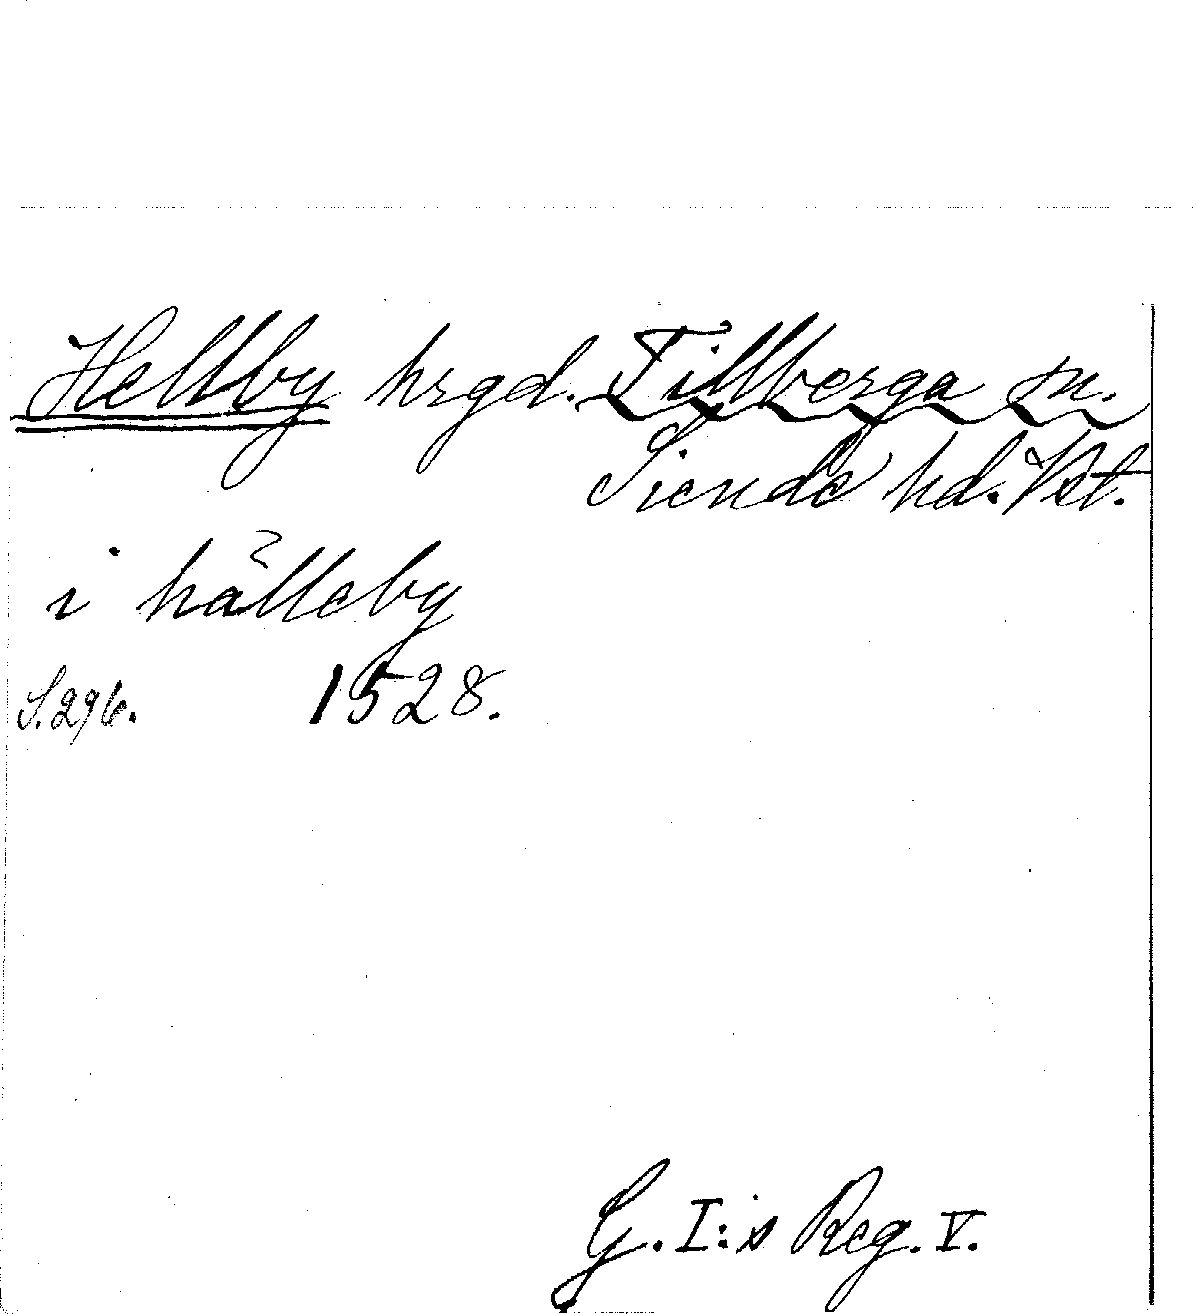 Hellby hrgd. Tillberga sn.
Siende hd. Vst.
i hälleby
S. 296. 1528.
G. I:s Reg. V.